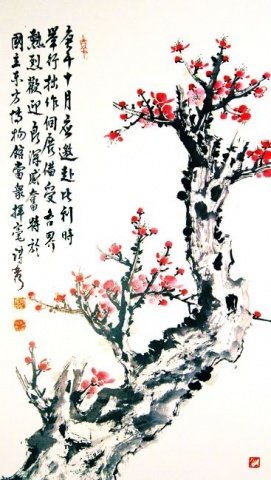 庚午十月应邀赴比利时
举行拙作個展備受各界
熱烈歡迎衷深感奮特於
國立东方博物館當眾揮毫